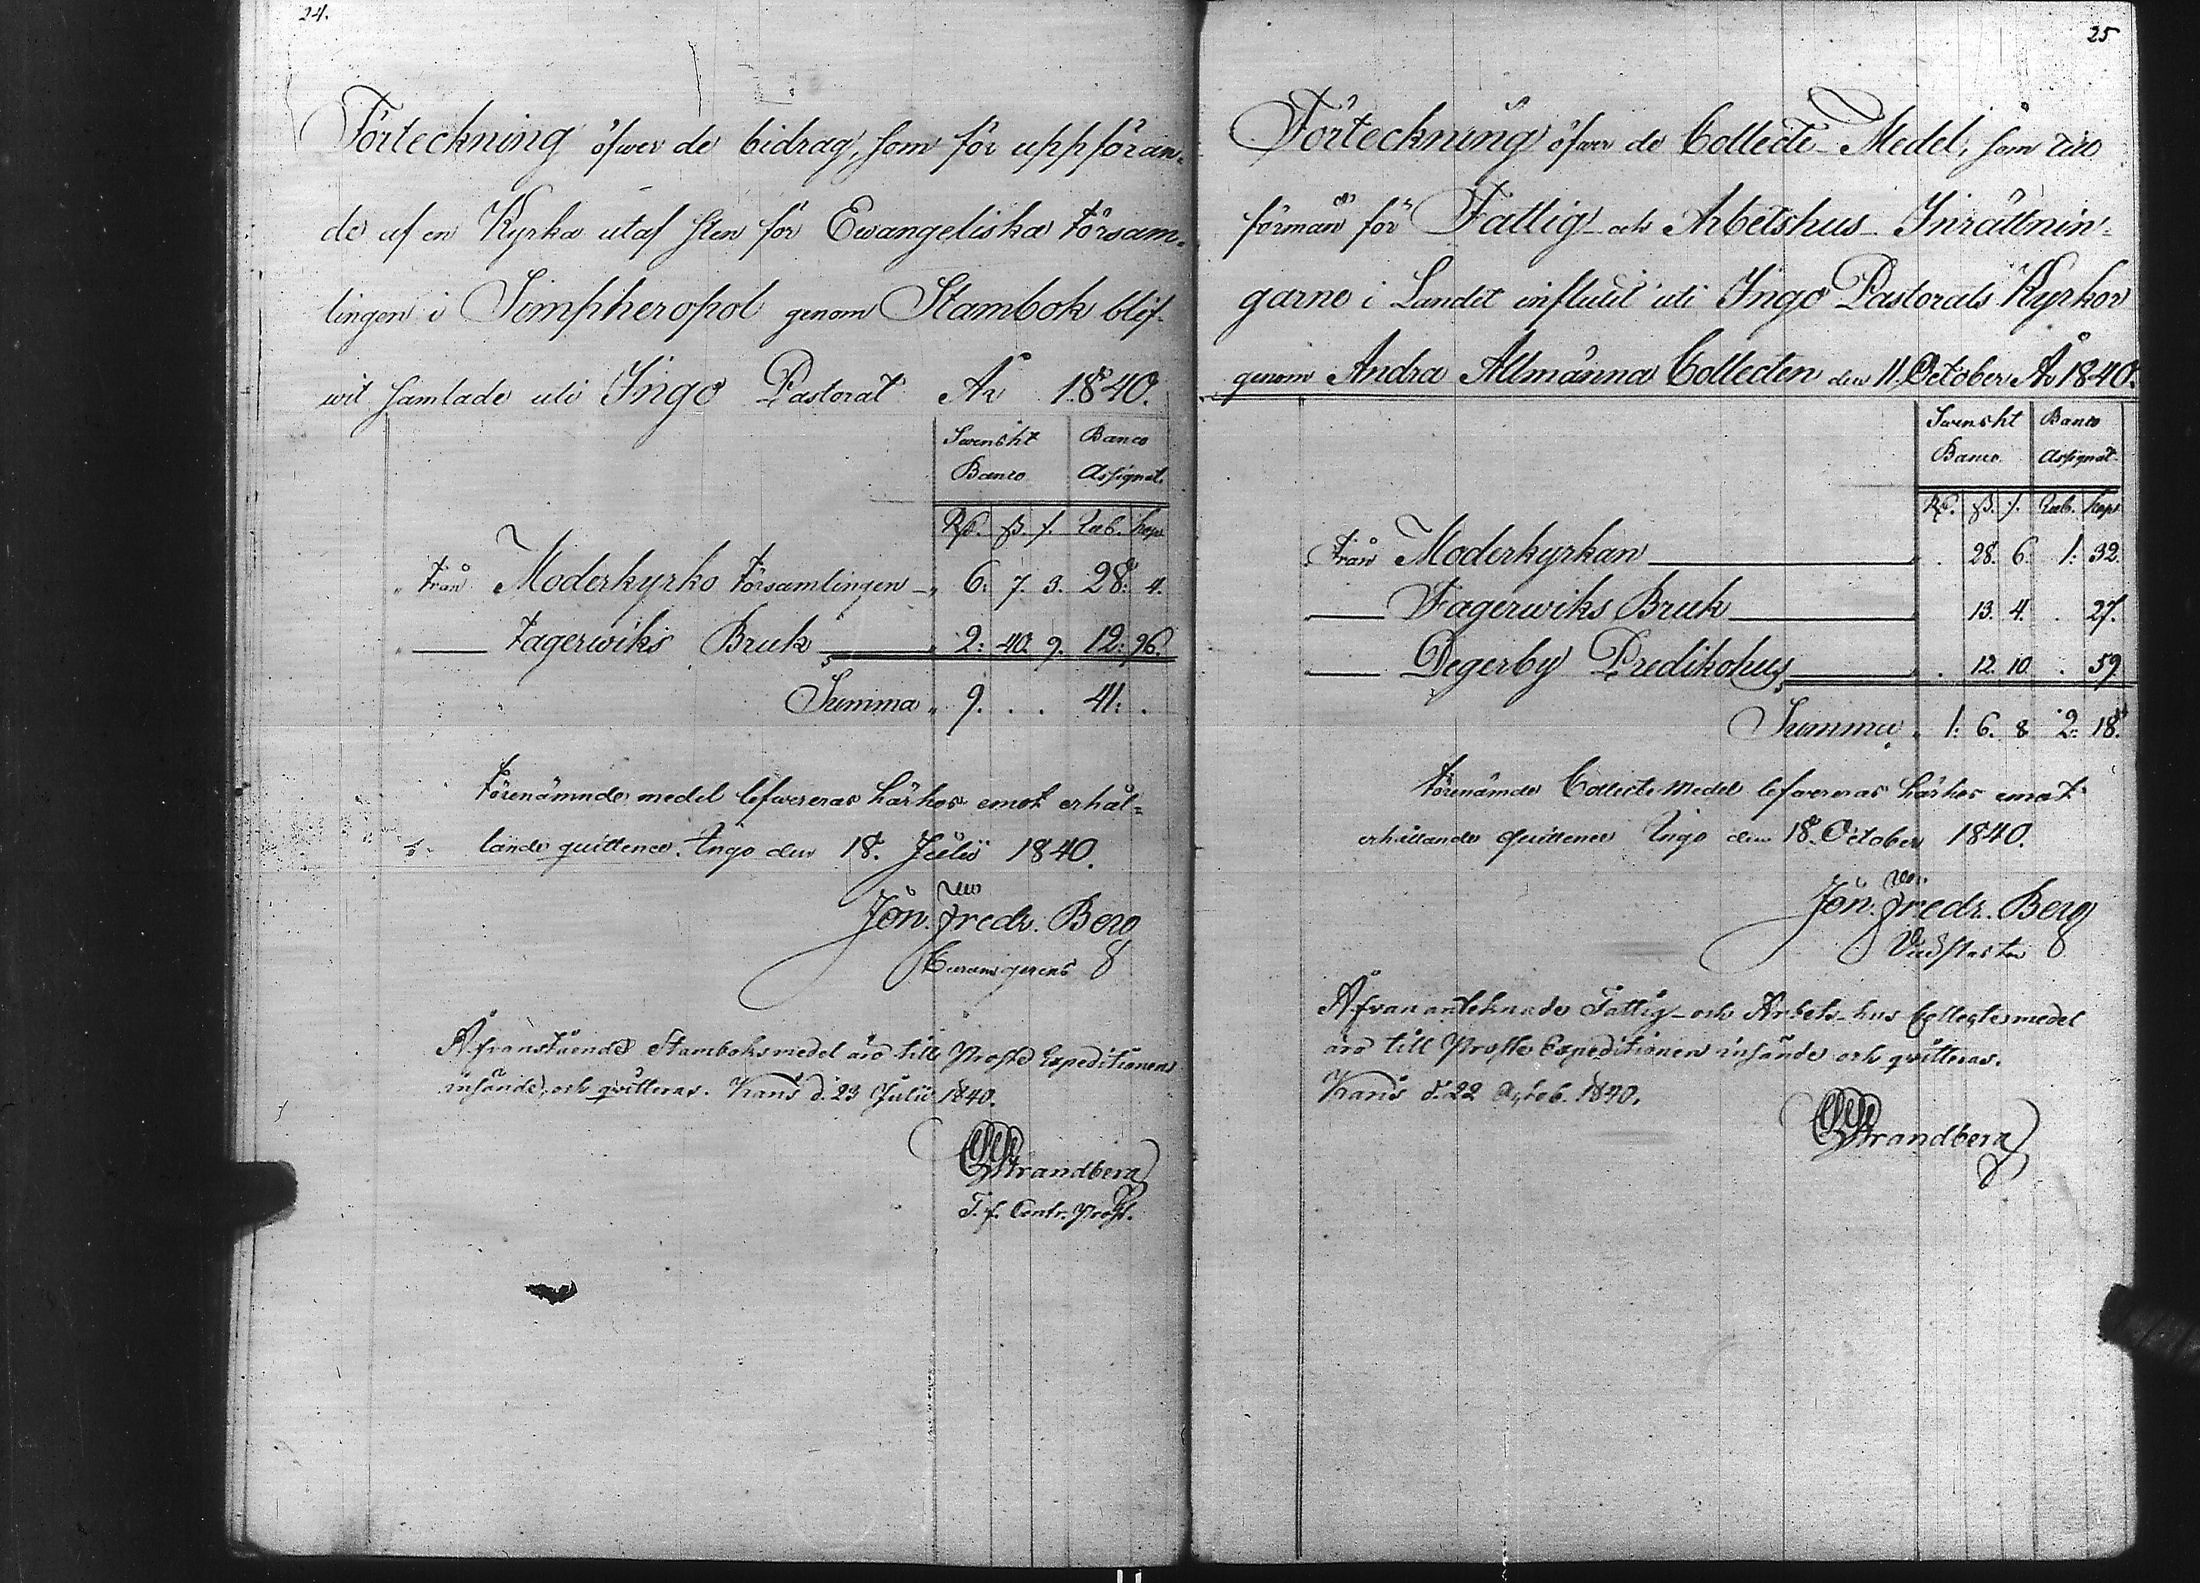 24.
Förteckning öfwer de bidrag, som för uppföran-
de af en Kyrka utaf sten för Ewangeliska Försam-
lingen i Simpheropol genom Stambok blif-
wit samlade uti Ingo Pastorat År 1840.
Swenskt Banco
Banco Assignat.
Rd. ß. r. Rub. kop.
Från Moderkyrko Församlingen 6. 7. 3. 28. 4.
Fagerwiks Bruk 2. 40. 9. 12. 96.
Summa 9. . . 41. .
Förenämnde medel lefwereras härhos emot erhål-
lande quittence. Ingo den 18. Julii 1840.
Jon. Fredr. Berg
Curam gerens
Åfvanstående Stamboksmedel äro till Proste Expeditionen
insände, och qvitteras. Karis d. 23 Julii 1840.
Strandberg
T. f. Contr. Prost.
25
Förteckning öfwer de Collecte-Medel, som till
förmån för Fattig- och Arbetshus-Inrättnin-
garne i Landet influtit uti Ingo Pastorats Kyrkor
genom Andra Allmänna Collecten den 11. October År 1840.
Swenskt Banco
Banco Assignat.
Rd. ß. r. Rub. kop.
Från Moderkyrkan . 28. 6. 1. 32.
Fagerwiks Bruk 13. 4. . 27.
Degerby Predikohus . 12. 10 . 59
Summa 1. 6. 8 2. 18.
Förenämde Collecte Medel lefwereras härhos emot
erhållande quittence Ingo den 18. October 1840.
Jon. Fredr. Berg
Vice Pastor
Åfvan antecknade Fattig- och Arbets-hus Collectemedel
äro till Proste Expeditionen insände och qvitteras.
Karis d. 22 Octob. 1840.
Strandberg